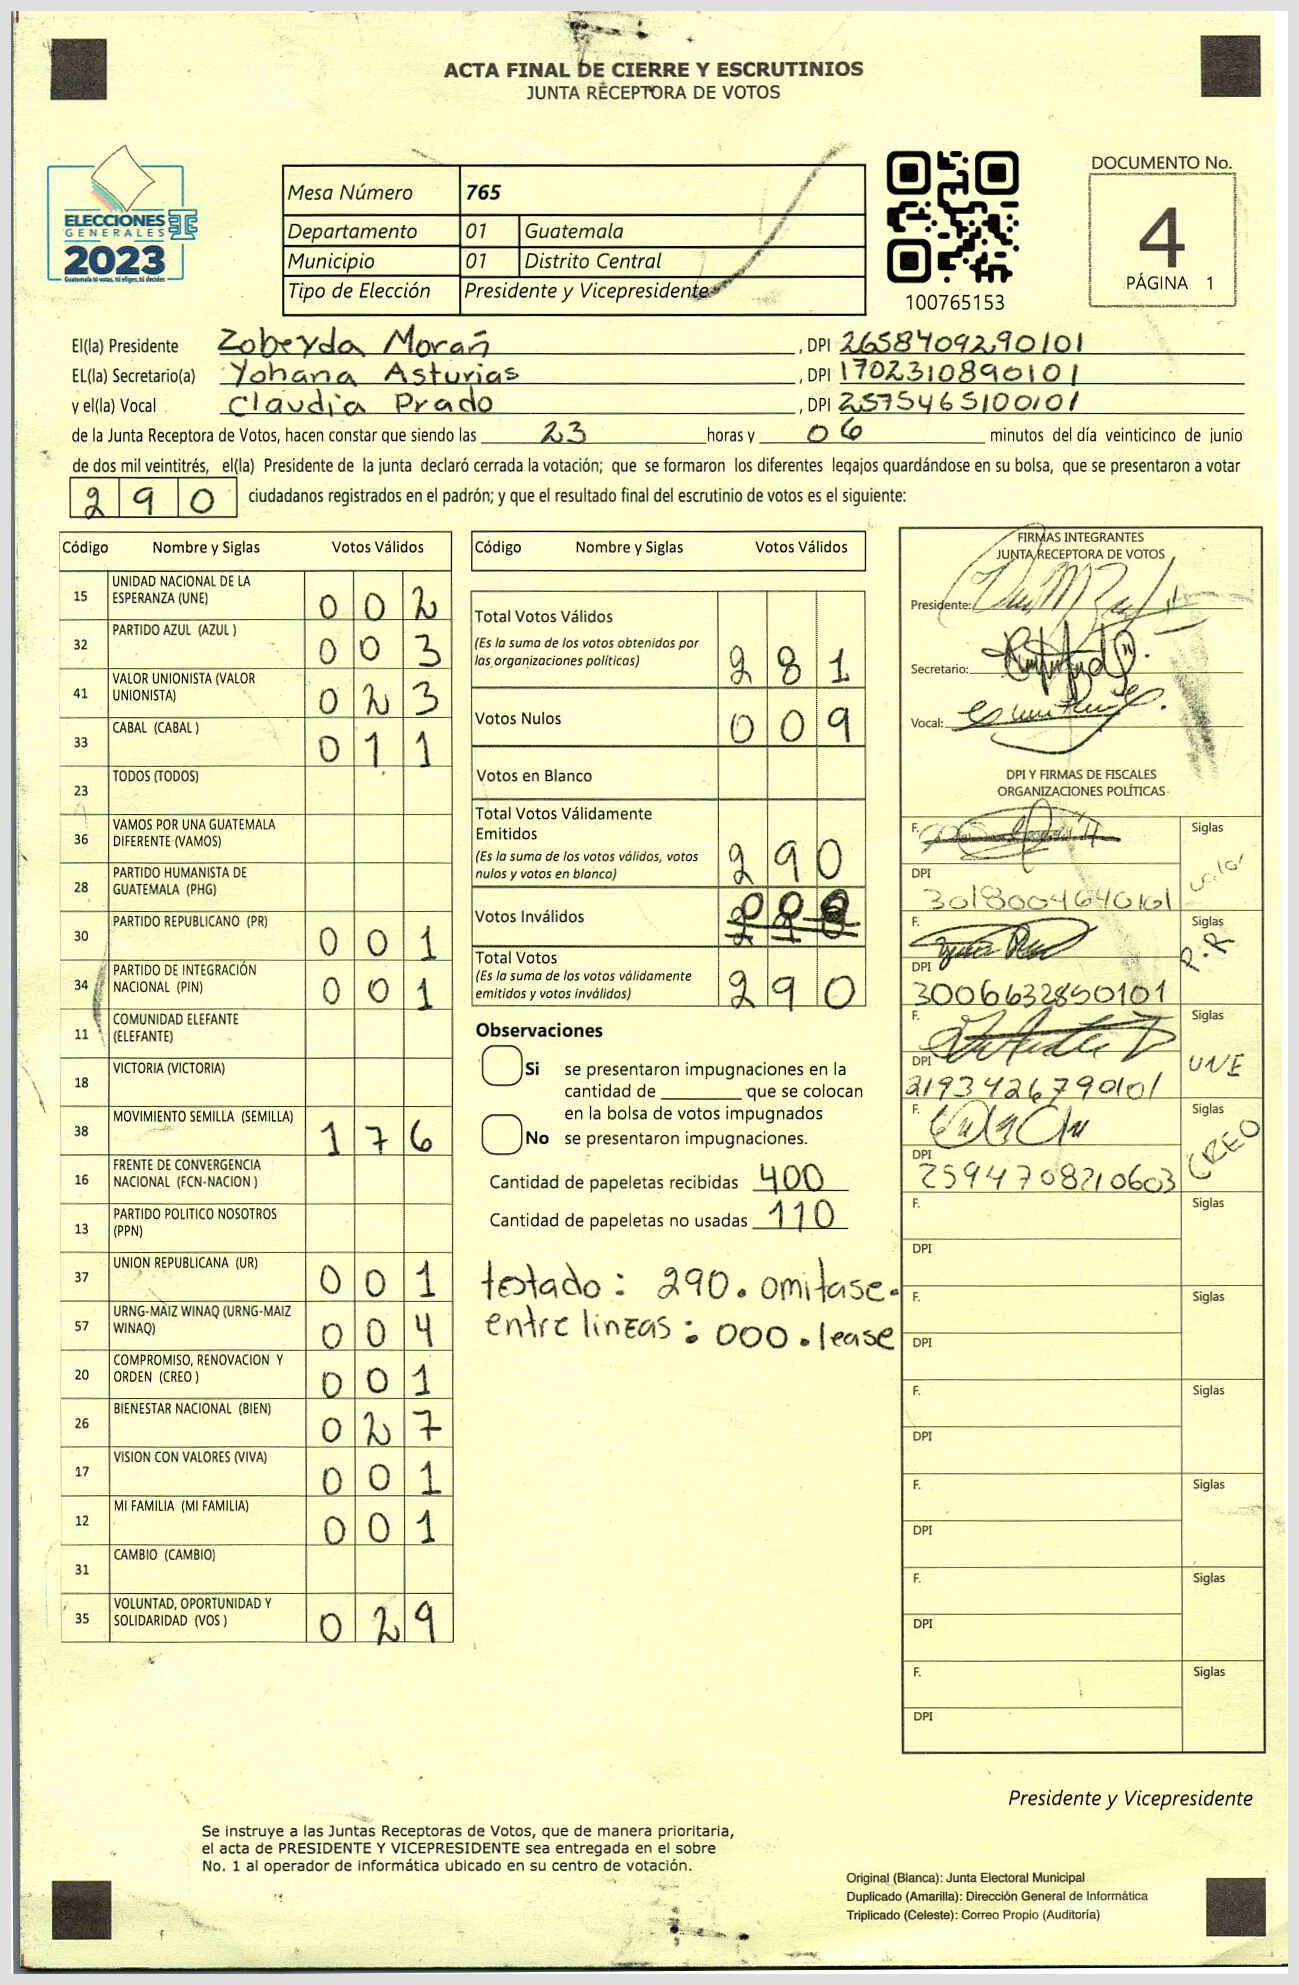 ACTA FINAL DE CIERRE Y ESCRUTINIOS
JUNTA RECEPTORA DE VOTOS
ELECCIONES
GENERALES
2023
Guatemala tú votas, tú eliges, tú decides
Mesa Número 765
Departamento 01 Guatemala
Municipio 01 Distrito Central
Tipo de Elección Presidente y Vicepresidente
100765153
DOCUMENTO No.
4
PÁGINA 1
El(la) Presidente Zobeyda Morañ, DPI 2658409290101
EL(la) Secretario(a) Yohana Asturias, DPI 1702310890101
y el(la) Vocal Claudia Prado, DPI 2575465100101
de la Junta Receptora de Votos, hacen constar que siendo las 23 horas y 06 minutos del día veinticinco de junio
de dos mil veintitrés, el(la) Presidente de la junta declaró cerrada la votación; que se formaron los diferentes legajos guardándose en su bolsa, que se presentaron a votar
290 ciudadanos registrados en el padrón; y que el resultado final del escrutinio de votos es el siguiente:
Código Nombre y Siglas Votos Válidos
15 UNIDAD NACIONAL DE LA ESPERANZA (UNE) 002
32 PARTIDO AZUL (AZUL ) 003
41 VALOR UNIONISTA (VALOR UNIONISTA) 023
33 CABAL (CABAL ) 011
23 TODOS (TODOS)
36 VAMOS POR UNA GUATEMALA DIFERENTE (VAMOS)
28 PARTIDO HUMANISTA DE GUATEMALA (PHG)
30 PARTIDO REPUBLICANO (PR) 001
34 PARTIDO DE INTEGRACIÓN NACIONAL (PIN) 001
11 COMUNIDAD ELEFANTE (ELEFANTE)
18 VICTORIA (VICTORIA)
38 MOVIMIENTO SEMILLA (SEMILLA) 176
16 FRENTE DE CONVERGENCIA NACIONAL (FCN-NACION )
13 PARTIDO POLITICO NOSOTROS (PPN)
37 UNION REPUBLICANA (UR) 001
57 URNG-MAIZ WINAQ (URNG-MAIZ WINAQ) 004
20 COMPROMISO, RENOVACION Y ORDEN (CREO ) 001
26 BIENESTAR NACIONAL (BIEN) 027
17 VISION CON VALORES (VIVA) 001
12 MI FAMILIA (MI FAMILIA) 001
31 CAMBIO (CAMBIO)
35 VOLUNTAD, OPORTUNIDAD Y SOLIDARIDAD (VOS ) 029
Código Nombre y Siglas Votos Válidos
Total Votos Válidos
(Es la suma de los votos obtenidos por
las organizaciones políticas) 281
Votos Nulos 009
Votos en Blanco
Total Votos Válidamente
Emitidos
(Es la suma de los votos válidos, votos
nulos y votos en blanco) 290
Votos Inválidos 000
Total Votos
(Es la suma de los votos válidamente
emitidos y votos inválidos) 290
Observaciones
Si se presentaron impugnaciones en la
cantidad de ________ que se colocan
en la bolsa de votos impugnados
No se presentaron impugnaciones.
Cantidad de papeletas recibidas 400
Cantidad de papeletas no usadas 110
testado: 290. omitase.
entre lineas: 000. lease
FIRMAS INTEGRANTES
JUNTA RECEPTORA DE VOTOS
Presidente:
Secretario:
Vocal:
DPI Y FIRMAS DE FISCALES
ORGANIZACIONES POLÍTICAS
F. Siglas valor
DPI 3018004640101
F. Siglas P.R
DPI 3006632850101
F. Siglas UNE
DPI 2193426790101
F. Siglas CREO
DPI 2594708210603
F. Siglas
DPI
F. Siglas
DPI
F. Siglas
DPI
F. Siglas
DPI
F. Siglas
DPI
F. Siglas
DPI
Presidente y Vicepresidente
Se instruye a las Juntas Receptoras de Votos, que de manera prioritaria,
el acta de PRESIDENTE Y VICEPRESIDENTE sea entregada en el sobre
No. 1 al operador de informática ubicado en su centro de votación.
Original (Blanca): Junta Electoral Municipal
Duplicado (Amarilla): Dirección General de Informática
Triplicado (Celeste): Correo Propio (Auditoría)